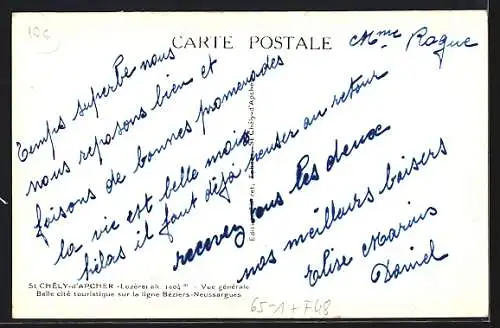 10€
CARTE POSTALE
Mme Rague
Temps superbe nous
nous reposons bien et
faisons de bonnes promenades
la vie est belle mais
hélas il faut déjà penser au retour
recevez tous les deux
nos meilleurs baisers
Elise Marius
Daniel
St CHÉLY-d'APCHER -Lozère- alt. 1004 m - Vue générale
Belle cité touristique sur la ligne Béziers-Neussargues
65-1 + F48